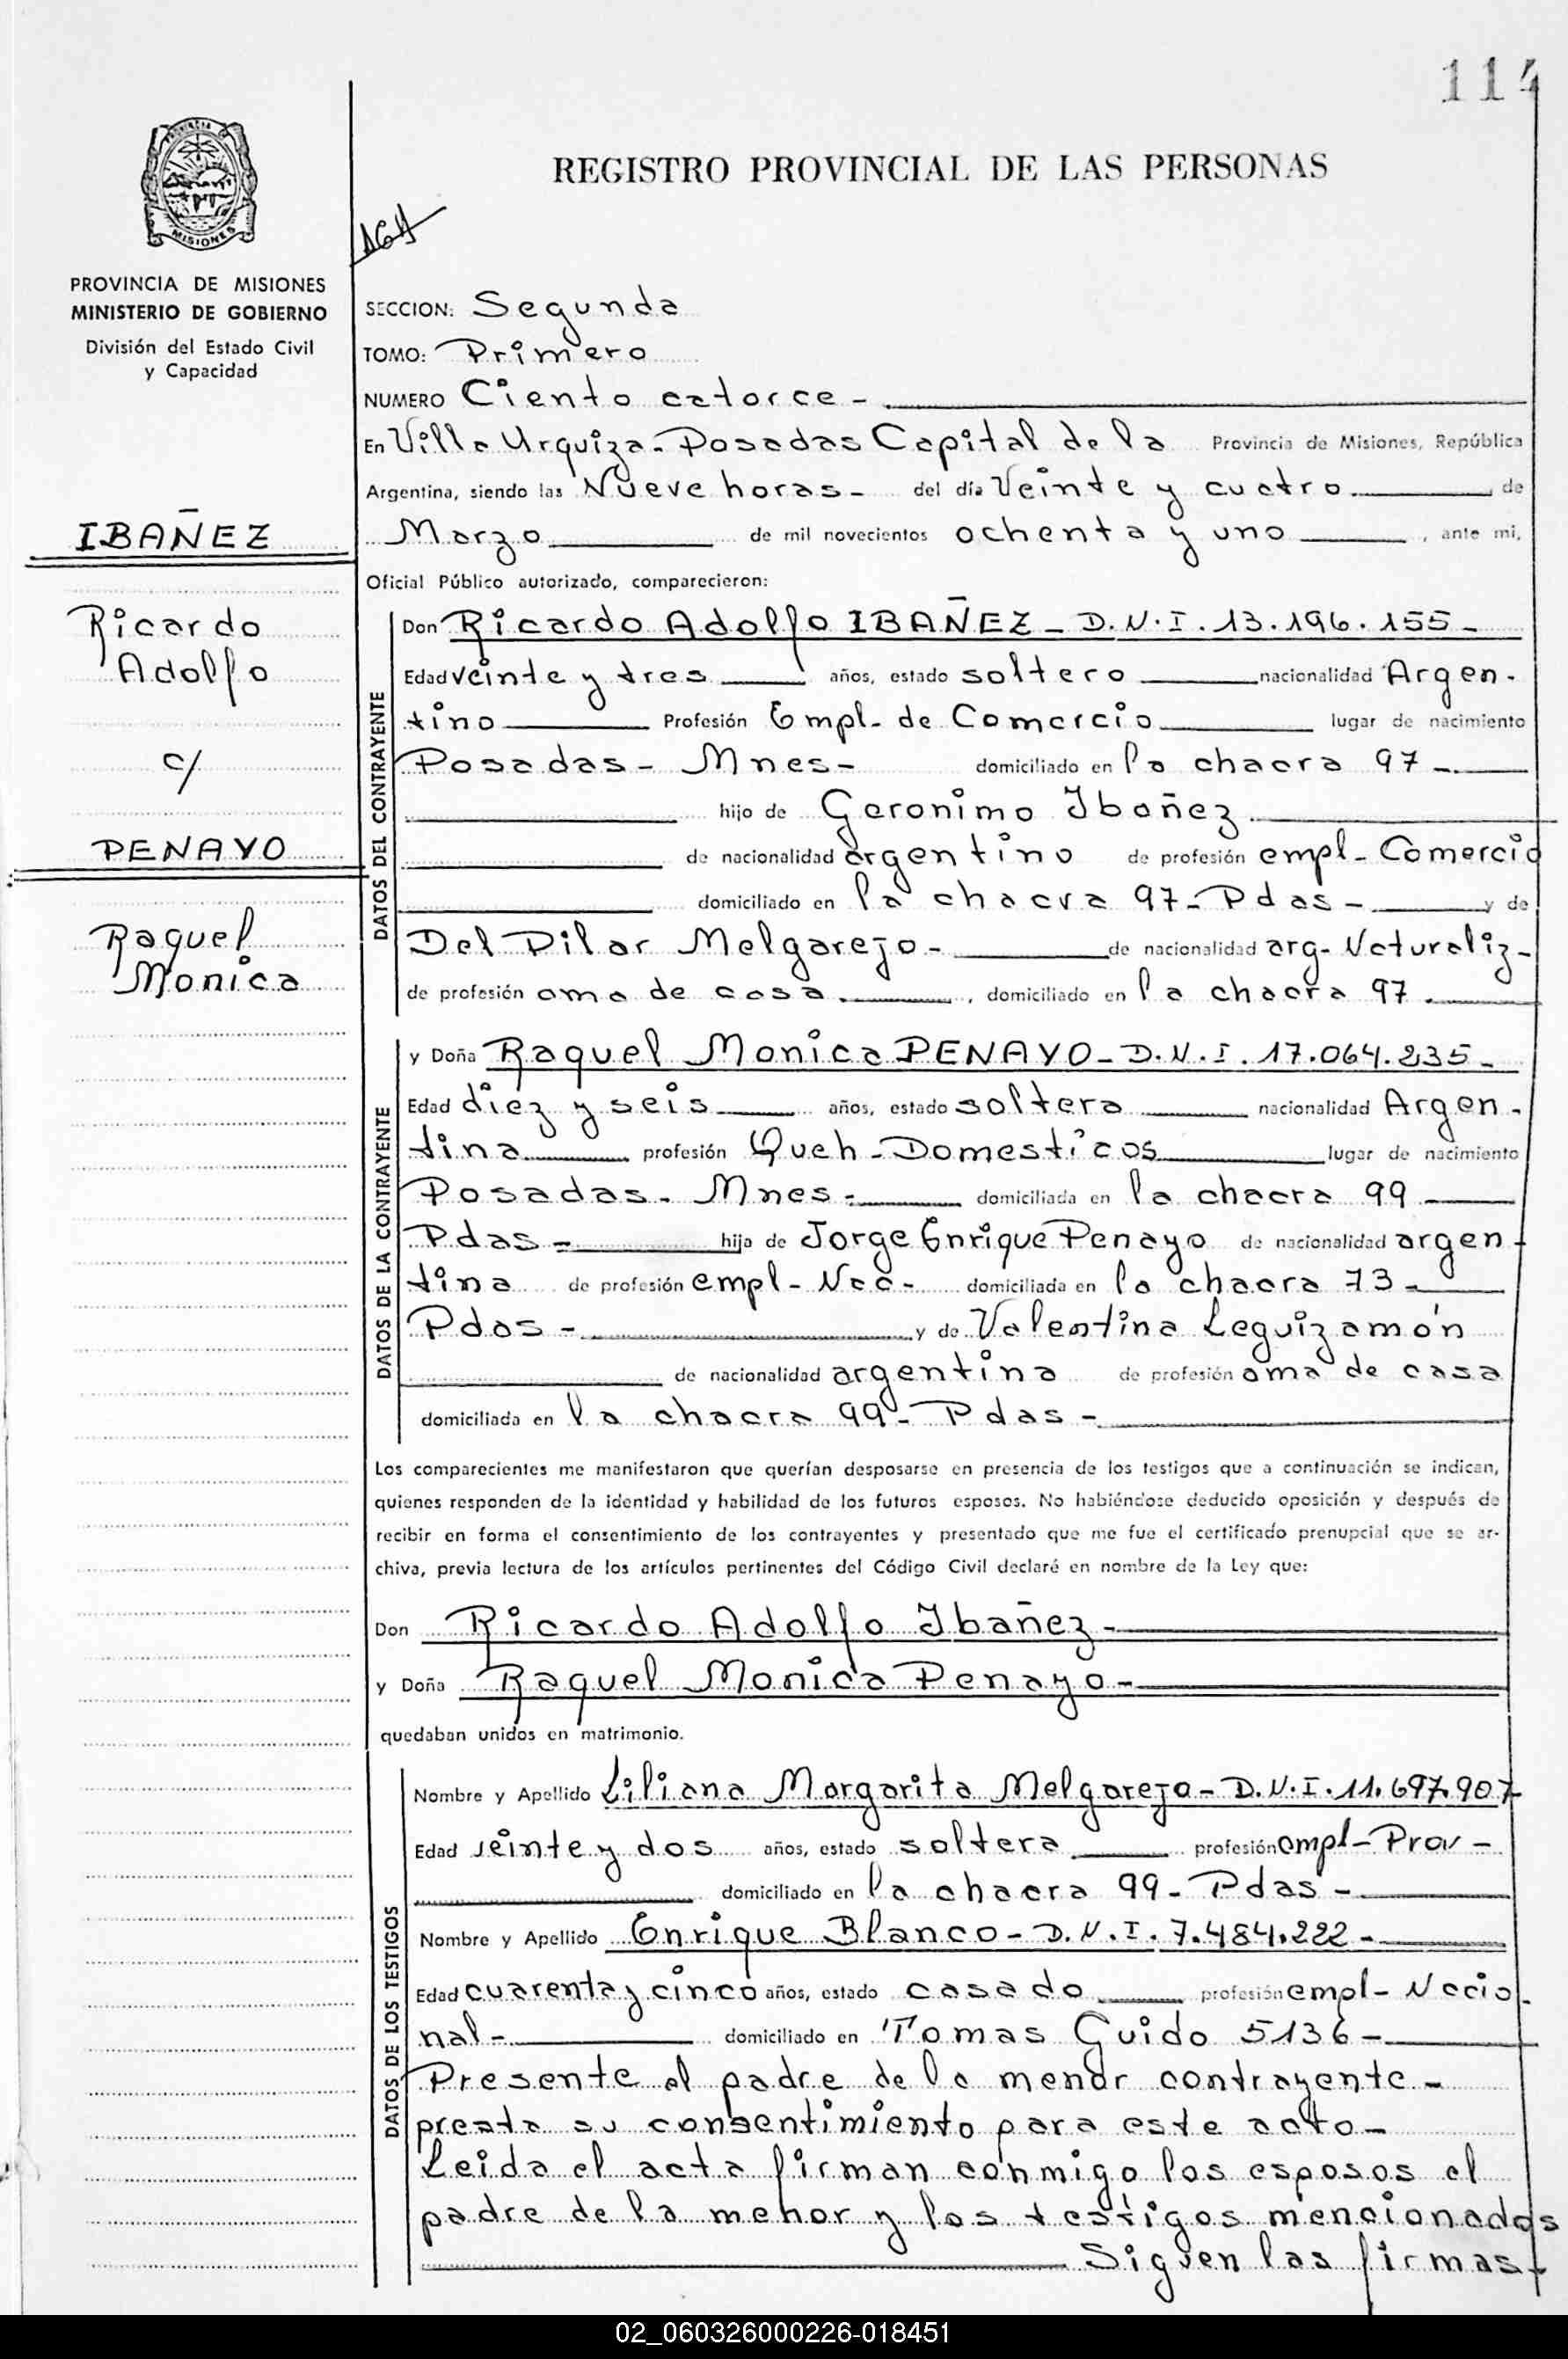 114
REGISTRO PROVINCIAL DE LAS PERSONAS
PROVINCIA DE MISIONES
MINISTERIO DE GOBIERNO
División del Estado Civil
y Capacidad
IBAÑEZ
Ricardo
Adolfo
c/
PENAYO
Raquel
Monica
SECCION: Segunda
TOMO: Primero
NUMERO Ciento catorce -
En Villa Urquiza - Posadas Capital de la Provincia de Misiones, República
Argentina, siendo las Nueve horas - del día Veinte y cuatro de
Marzo de mil novecientos ochenta y uno , ante mi,
Oficial Público autorizado, comparecieron:
DATOS DEL CONTRAYENTE
Don Ricardo Adolfo IBAÑEZ - D.N.I. 13.196.155 -
Edad veinte y tres años, estado soltero nacionalidad Argen-
tino Profesión Empl- de Comercio lugar de nacimiento
Posadas - Mnes - domiciliado en la chacra 97 -
hijo de Geronimo Ibañez
de nacionalidad argentino de profesión empl- Comercio
domiciliado en la chacra 97 - Pdas - y de
Del Pilar Melgarejo - de nacionalidad arg- Naturaliz-
de profesión ama de casa , domiciliado en la chacra 97
DATOS DE LA CONTRAYENTE
y Doña Raquel Monica PENAYO - D.N.I. 17.064.235 -
Edad diez y seis años, estado soltera nacionalidad Argen-
tina profesión Queh - Domesticos lugar de nacimiento
Posadas - Mnes - domiciliada en la chacra 99
Pdas - hija de Jorge Enrique Penayo de nacionalidad argen-
tina de profesión empl - Nac - domiciliada en la chacra 73 -
Pdas - y de Valentina Leguizamón
de nacionalidad argentina de profesión ama de casa
domiciliada en la chacra 99 - Pdas -
Los comparecientes me manifestaron que querían desposarse en presencia de los testigos que a continuación se indican,
quienes responden de la identidad y habilidad de los futuros esposos. No habiéndose deducido oposición y después de
recibir en forma el consentimiento de los contrayentes y presentado que me fue el certificado prenupcial que se ar-
chiva, previa lectura de los artículos pertinentes del Código Civil declaré en nombre de la Ley que:
Don Ricardo Adolfo Ibañez -
y Doña Raquel Monica Penayo -
quedaban unidos en matrimonio.
DATOS DE LOS TESTIGOS
Nombre y Apellido Liliana Margarita Melgarejo - D.N.I. 11.697.907
Edad veinte y dos años, estado soltera profesión empl - Prov -
domiciliado en la chacra 99 - Pdas -
Nombre y Apellido Enrique Blanco - D.N.I. 7.484.222 -
Edad cuarenta y cinco años, estado casado profesión empl - Nacio-
nal - domiciliado en Tomas Guido 5136 -
Presente el padre de la menor contrayente -
presta su consentimiento para este acto -
Leida el acta firman conmigo los esposos el
padre de la menor y los testigos mencionados
Siguen las firmas -
02_060326000226-018451